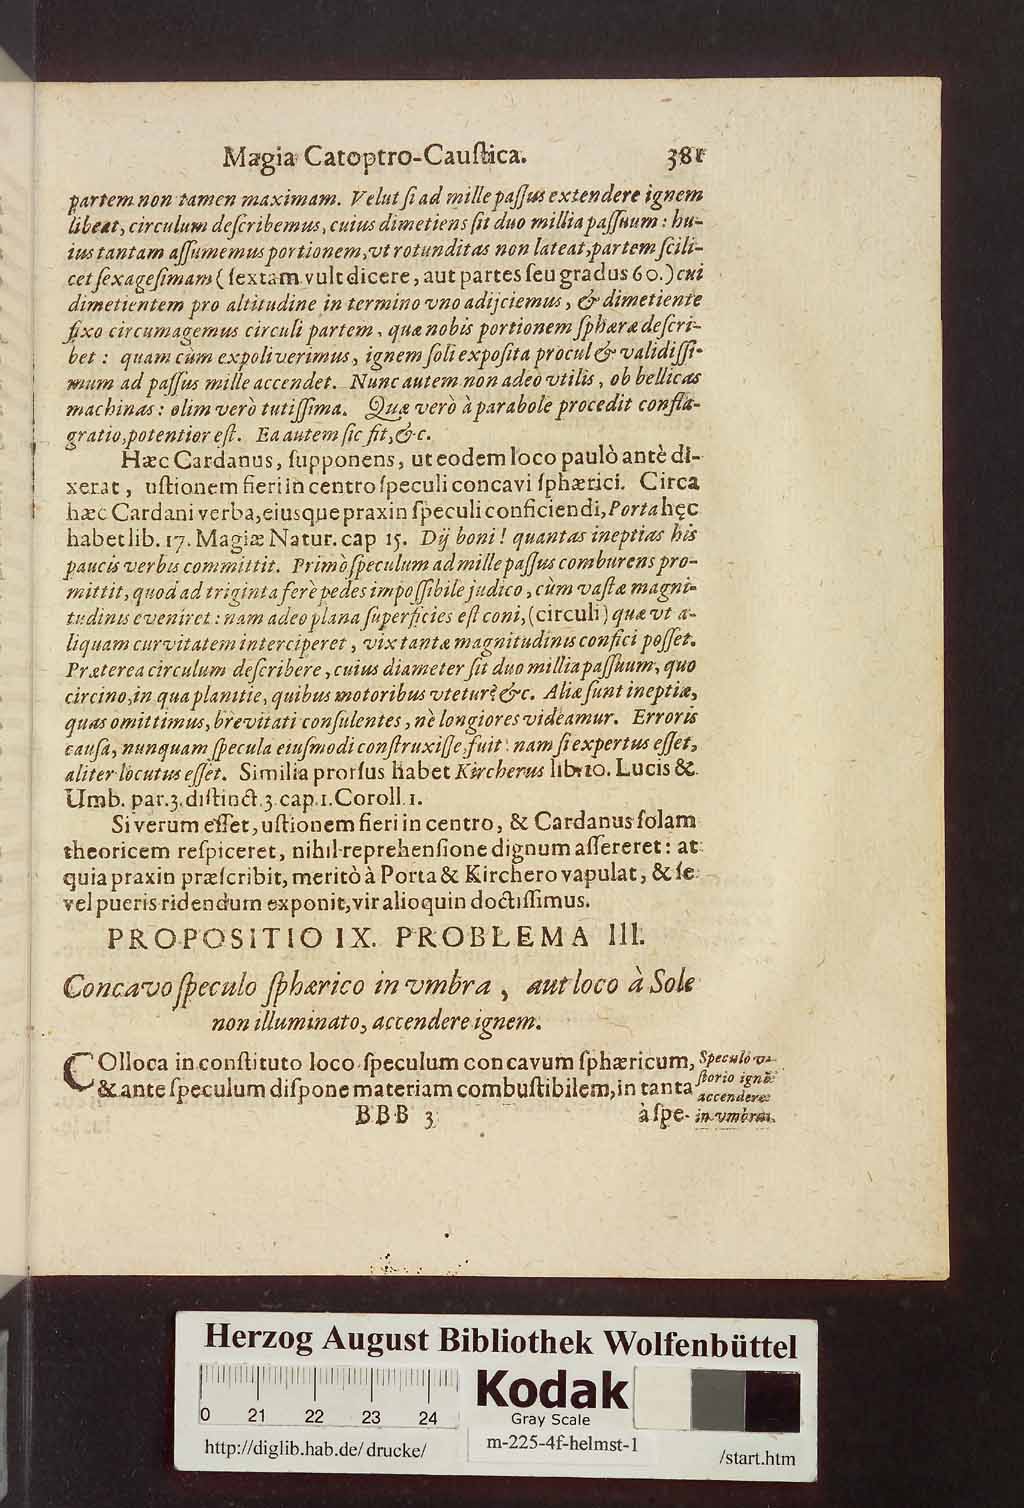 Magia Catoptro-Cauſtica. 381
partem non tamen maximam. Velut ſi ad mille paſſus extendere ignem
libeat, circulum deſcribemus, cuius dimetiens ſit duo millia paſſuum: hu-
ius tantam aſſumemus portionem, vt rotunditas non lateat, partem ſcili-
cet ſexageſimam (ſextam vult dicere, aut partes ſeu gradus 60.) cui
dimetientem pro altitudine in termino vno adijciemus, & dimetiente
fixo circumagemus circuli partem, quæ nobis portionem ſphæræ deſcri-
bet: quam cùm expoliverimus, ignem ſoli expoſita procul & validiſſi-
mum ad paſſus mille accendet. Nunc autem non adeò vtilis, ob bellicas
machinas: olim verò tutiſſima. Quæ verò à parabole procedit confla-
gratio, potentior eſt. Ea autem ſic fit, &c.
Hæc Cardanus, ſupponens, ut eodem loco paulò antè di-
xerat, uſtionem fieri in centro ſpeculi concavi ſphærici. Circa
hæc Cardani verba, eiusque praxin ſpeculi conficiendi, Porta hęc
habet lib. 17. Magiæ Natur. cap 15. Dij boni! quantas ineptias his
paucis verbis committit. Primò ſpeculum ad mille paſſus comburens pro-
mittit, quod ad triginta ferè pedes impoſſibile judico, cùm vaſtæ magni-
tudinis eveniret: nam adeo plana ſuperficies eſt coni, (circuli) quæ vt a-
liquam curvitatem interciperet, vix tantæ magnitudinis confici poſſet.
Præterea circulum deſcribere, cuius diameter ſit duo millia paſſuum, quo
circino, in qua planitie, quibus motoribus vtetur? &c. Aliæ ſunt ineptiæ,
quas omittimus, brevitati conſulentes, nè longiores videamur. Erroris
cauſa, nunquam ſpecula eiuſmodi conſtruxiſſe, fuit: nam ſi expertus eſſet,
aliter locutus eſſet. Similia prorſus habet Kircherus lib. 10. Lucis &
Umb. par. 3. diſtinct. 3. cap. 1. Coroll. 1.
Si verum eſſet, uſtionem fieri in centro, & Cardanus ſolam
theoricem reſpiceret, nihil reprehenſione dignum aſſereret: at
quia praxin præſcribit, meritò à Porta & Kirchero vapulat, & ſe
vel pueris ridendum exponit, vir alioquin doctiſſimus.
PROPOSITIO IX. PROBLEMA III.
Concavo ſpeculo ſphærico in vmbra, aut loco à Sole
non illuminato, accendere ignem.
COlloca in conſtituto loco ſpeculum concavum ſphæricum,
& ante ſpeculum diſpone materiam combuſtibilem, in tanta
Speculo v-
ſtorio ignē
accendere
in vmbra.
BBB 3 à ſpe-
Herzog August Bibliothek Wolfenbüttel
0 21 22 23 24
Kodak
Gray Scale
http://diglib.hab.de/drucke/ m-225-4f-helmst-1 /start.htm